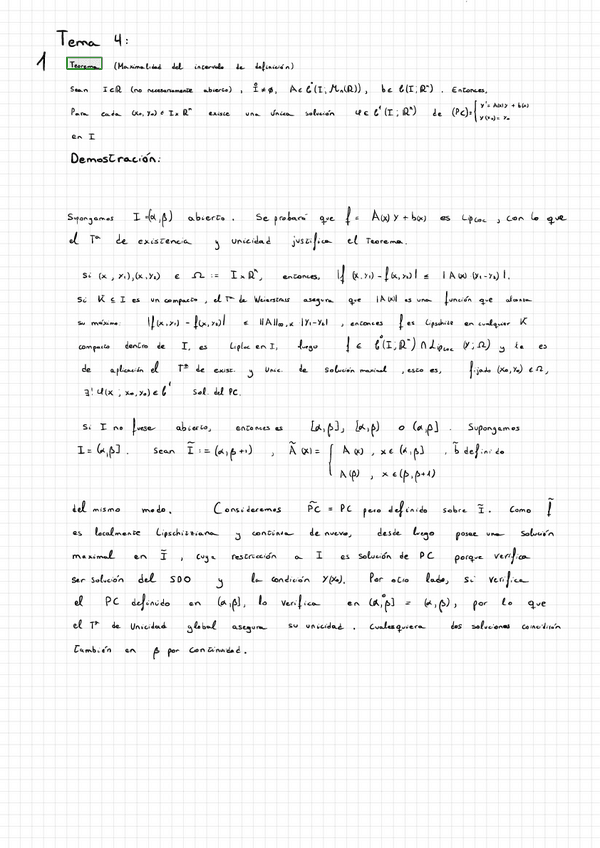 Tema 4:
1 Teorema (Maximalidad del intervalo de definición)
Sean I⊂ℝ (no necesariamente abierto), I̊≠∅, A∈C⁰(I; Mn(ℝ)), b∈C(I;ℝⁿ). Entonces,
Para cada (x₀,y₀) ∈ I×ℝⁿ existe una única solución φ∈C¹(I;ℝⁿ) de (PC)={ y'=A(x)y+b(x) y(x₀)=y₀
en I
Demostración:
Supongamos I=(α,β) abierto. Se probará que f = A(x)y+b(x) es Liploc, con lo que
el Tª de existencia y unicidad justifica el Teorema.
Si (x,y₁),(x,y₂) ∈ Ω := I×ℝⁿ, entonces, |f(x,y₁)-f(x,y₂)| ≤ |A(x)(y₁-y₂)|.
Si K ⊆ I es un compacto, el Tª de Weierstrass asegura que |A(x)| es una función que alcanza
su máximo: |f(x,y₁)-f(x,y₂)| ≤ ||A||∞,K |y₁-y₂|, entonces f es Lipschitz en cualquier K
compacto dentro de I, es Liploc en I, luego f ∈ C⁰(I;ℝⁿ)∩Liploc(y;Ω) y te es
de aplicación el Tª de exist. y unic. de solución maximal, esto es, fijado (x₀,y₀)∈Ω,
∃! φ(x; x₀,y₀)∈C¹ sol. del PC.
Si I no fuese abierto, entonces es [α,β], [α,β) o (α,β]. Supongamos
I=(α,β]. Sean Ĩ:=(α,β+1), Ã(x)={ A(x), x∈(α,β] , b̃ definido
A(β), x∈(β,β+1)
del mismo modo. Consideremos P̃C = PC pero definido sobre Ĩ. Como f̃
es localmente Lipschitziana y continua de nuevo, desde luego posee una solución
maximal en Ĩ, cuya restricción a I es solución de PC porque verifica
ser solución del SDO y la condición y(x₀). Por otro lado, si verifica
el PC definido en (α,β], lo verifica en (α,β]̊ = (α,β), por lo que
el Tª de Unicidad global asegura su unicidad. Cualesquiera dos soluciones coincidirán
también en β por continuidad.